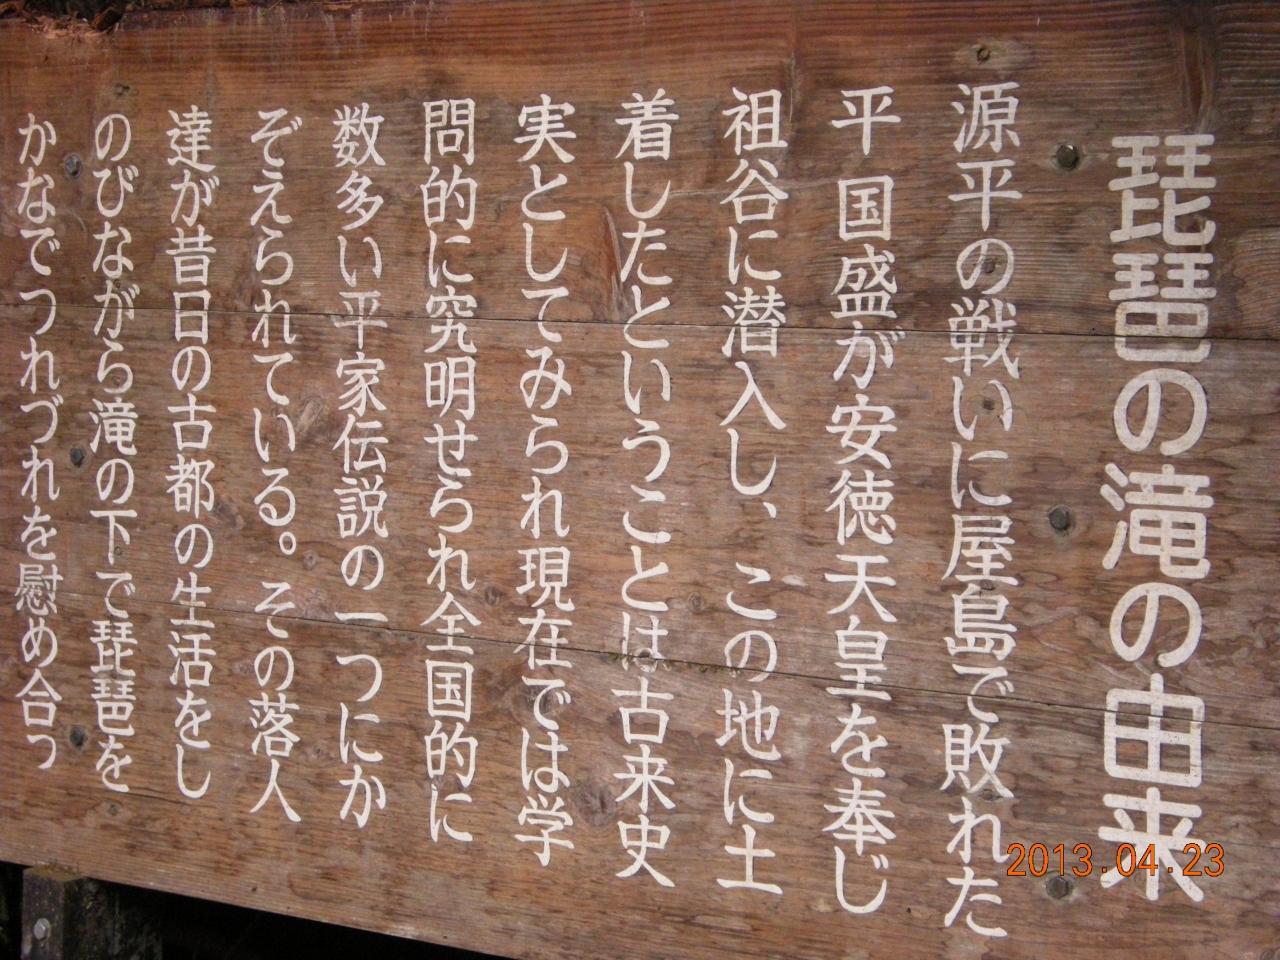 琵琶の滝の由来
源平の戦いに屋島で敗れた
平 国盛が安徳天皇を奉じ
祖谷に潜入し、この地に土
着したということは古来史
実としてみられ現在では学
問的に究明せられ全国的に
数多い平家伝説の一つにか
ぞえられている。その落人
達が昔日の古都の生活をし
のびながら滝の下で琵琶を
かなでつれづれを慰め合っ
2013.04.23